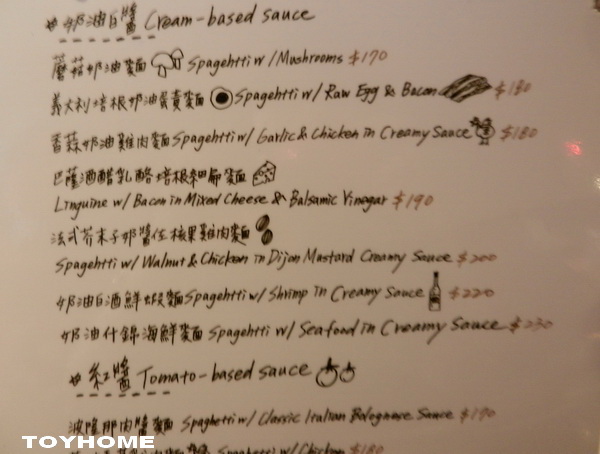 奶油白醬 Cream-based sauce
蘑菇奶油麵 Spagehtti w/Mushrooms $170
義大利培根奶油蛋黃麵 Spagehtti w/ Raw Egg & Bacon $180
香蒜奶油雞肉麵 Spagehtti w/ Garlic & Chicken in Creamy Sauce $180
巴薩酒醋乳酪培根細扁麵
Linguine w/ Bacon in Mixed Cheese & Balsamic Vinegar $190
法式芥末子奶醬佐核果雞肉麵
Spagehtti w/ Walnut & Chicken in Dijon Mustard Creamy Sauce $200
奶油白酒鮮蝦麵 Spagehtti w/ Shrimp in Creamy Sauce $220
奶油什錦海鮮麵 Spagehtti w/ Seafood in Creamy Sauce $230
紅醬 Tomato-based sauce
波隆那肉醬麵 Spaghetti w/ Classic Italian Bolognase Sauce $190
Spaghetti w/ Chicken $180
TOYHOME